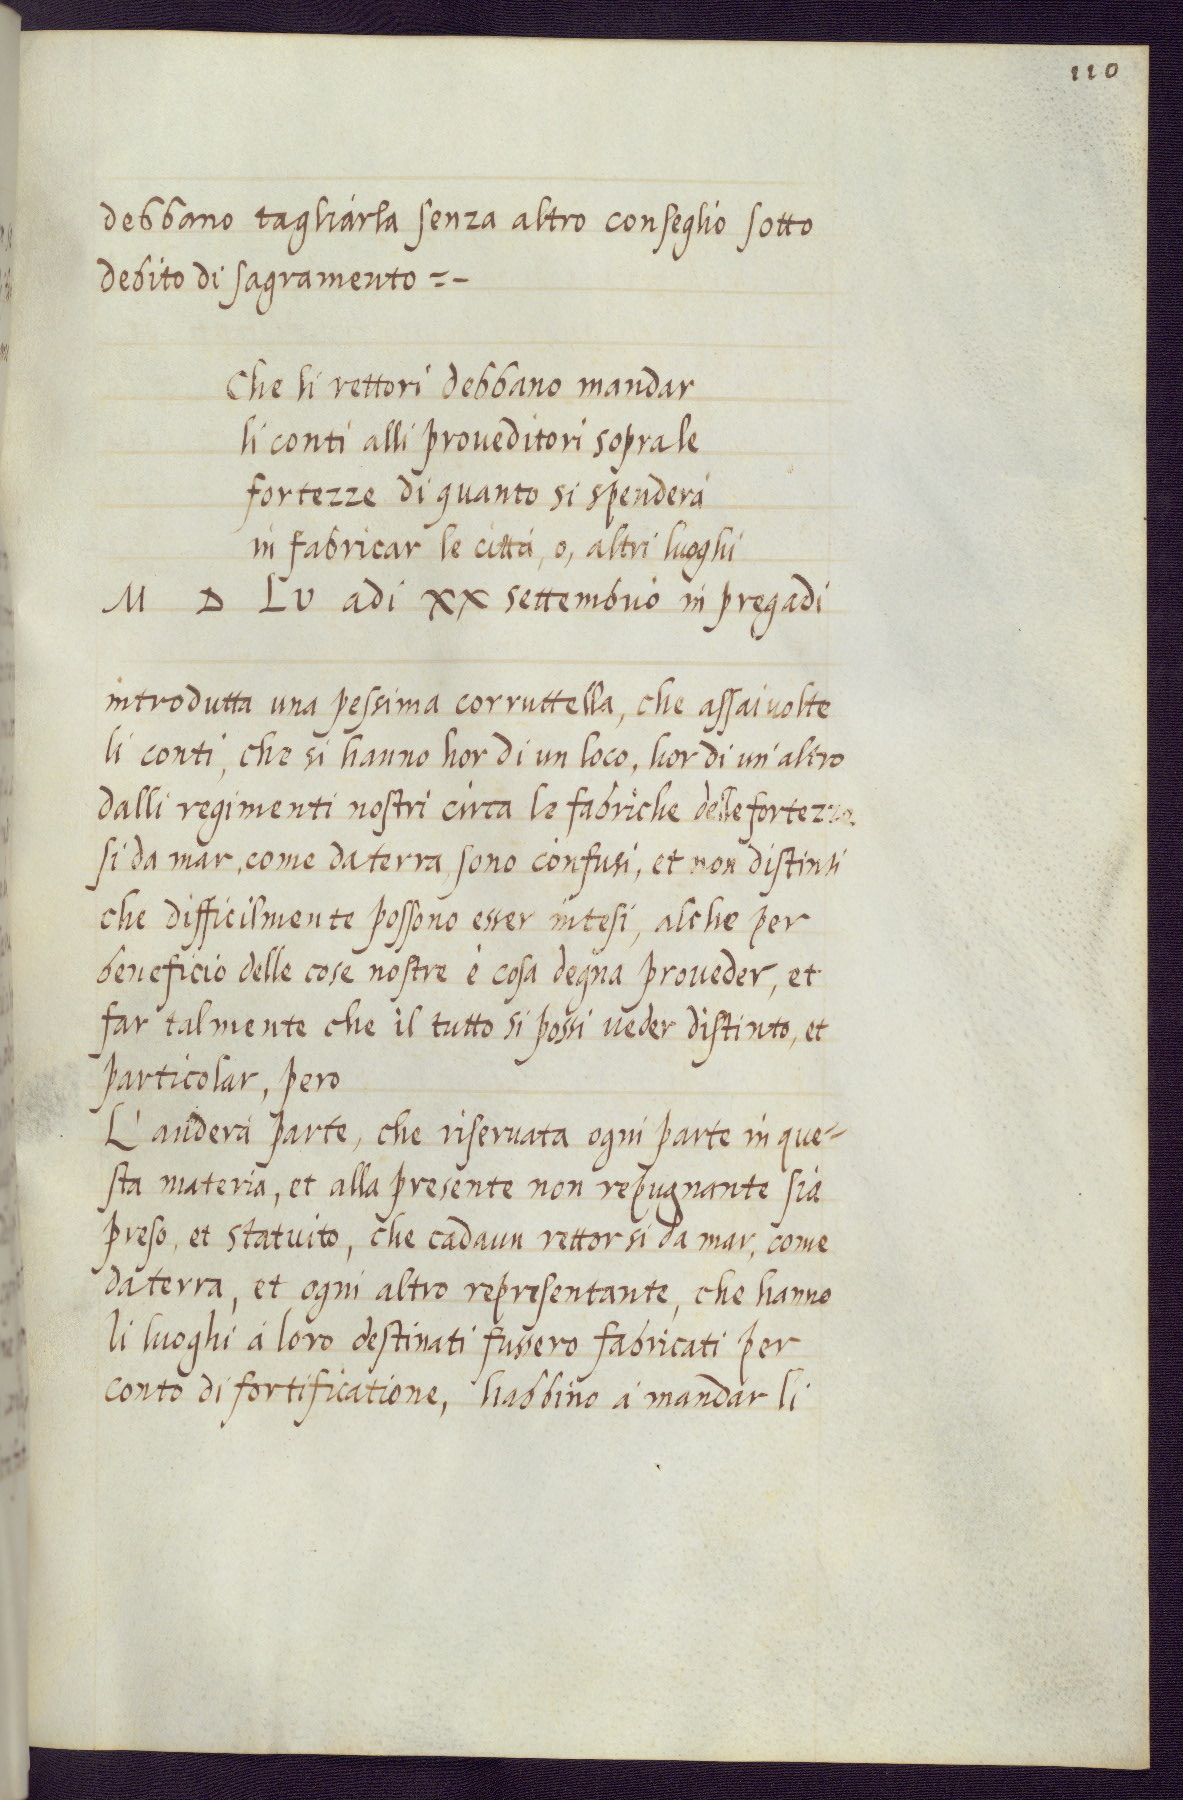 110
debbano tagliarla senza altro conseglio sotto
debito di sagramento =-
Che li rettori debbano mandar
li conti alli proueditori sopra le
fortezze di quanto si spenderà
in fabricar le città, o, altri luoghi
M D LV adi XX settembrio in pregadi
introdutta una pessima corruttella, che assai uolte
li conti, che si hanno hor di un loco, hor di un'altro
dalli regimenti nostri circa le fabriche delle fortezze
si da mar, come da terra, sono confusi, et non distinti
che difficilmente possono esser intesi, alche per
beneficio delle cose nostre è cosa degna proueder, et
far talmente che il tutto si possi ueder distinto, et
particolar, pero
L'anderà parte, che riseruata ogni parte in que=
sta materia, et alla presente non repugnante sia
preso, et statuito, che cadaun rettor si da mar, come
da terra, et ogni altro representante, che hanno
li luoghi à loro destinati fussero fabricati per
conto di fortificatione, habbino à mandar li